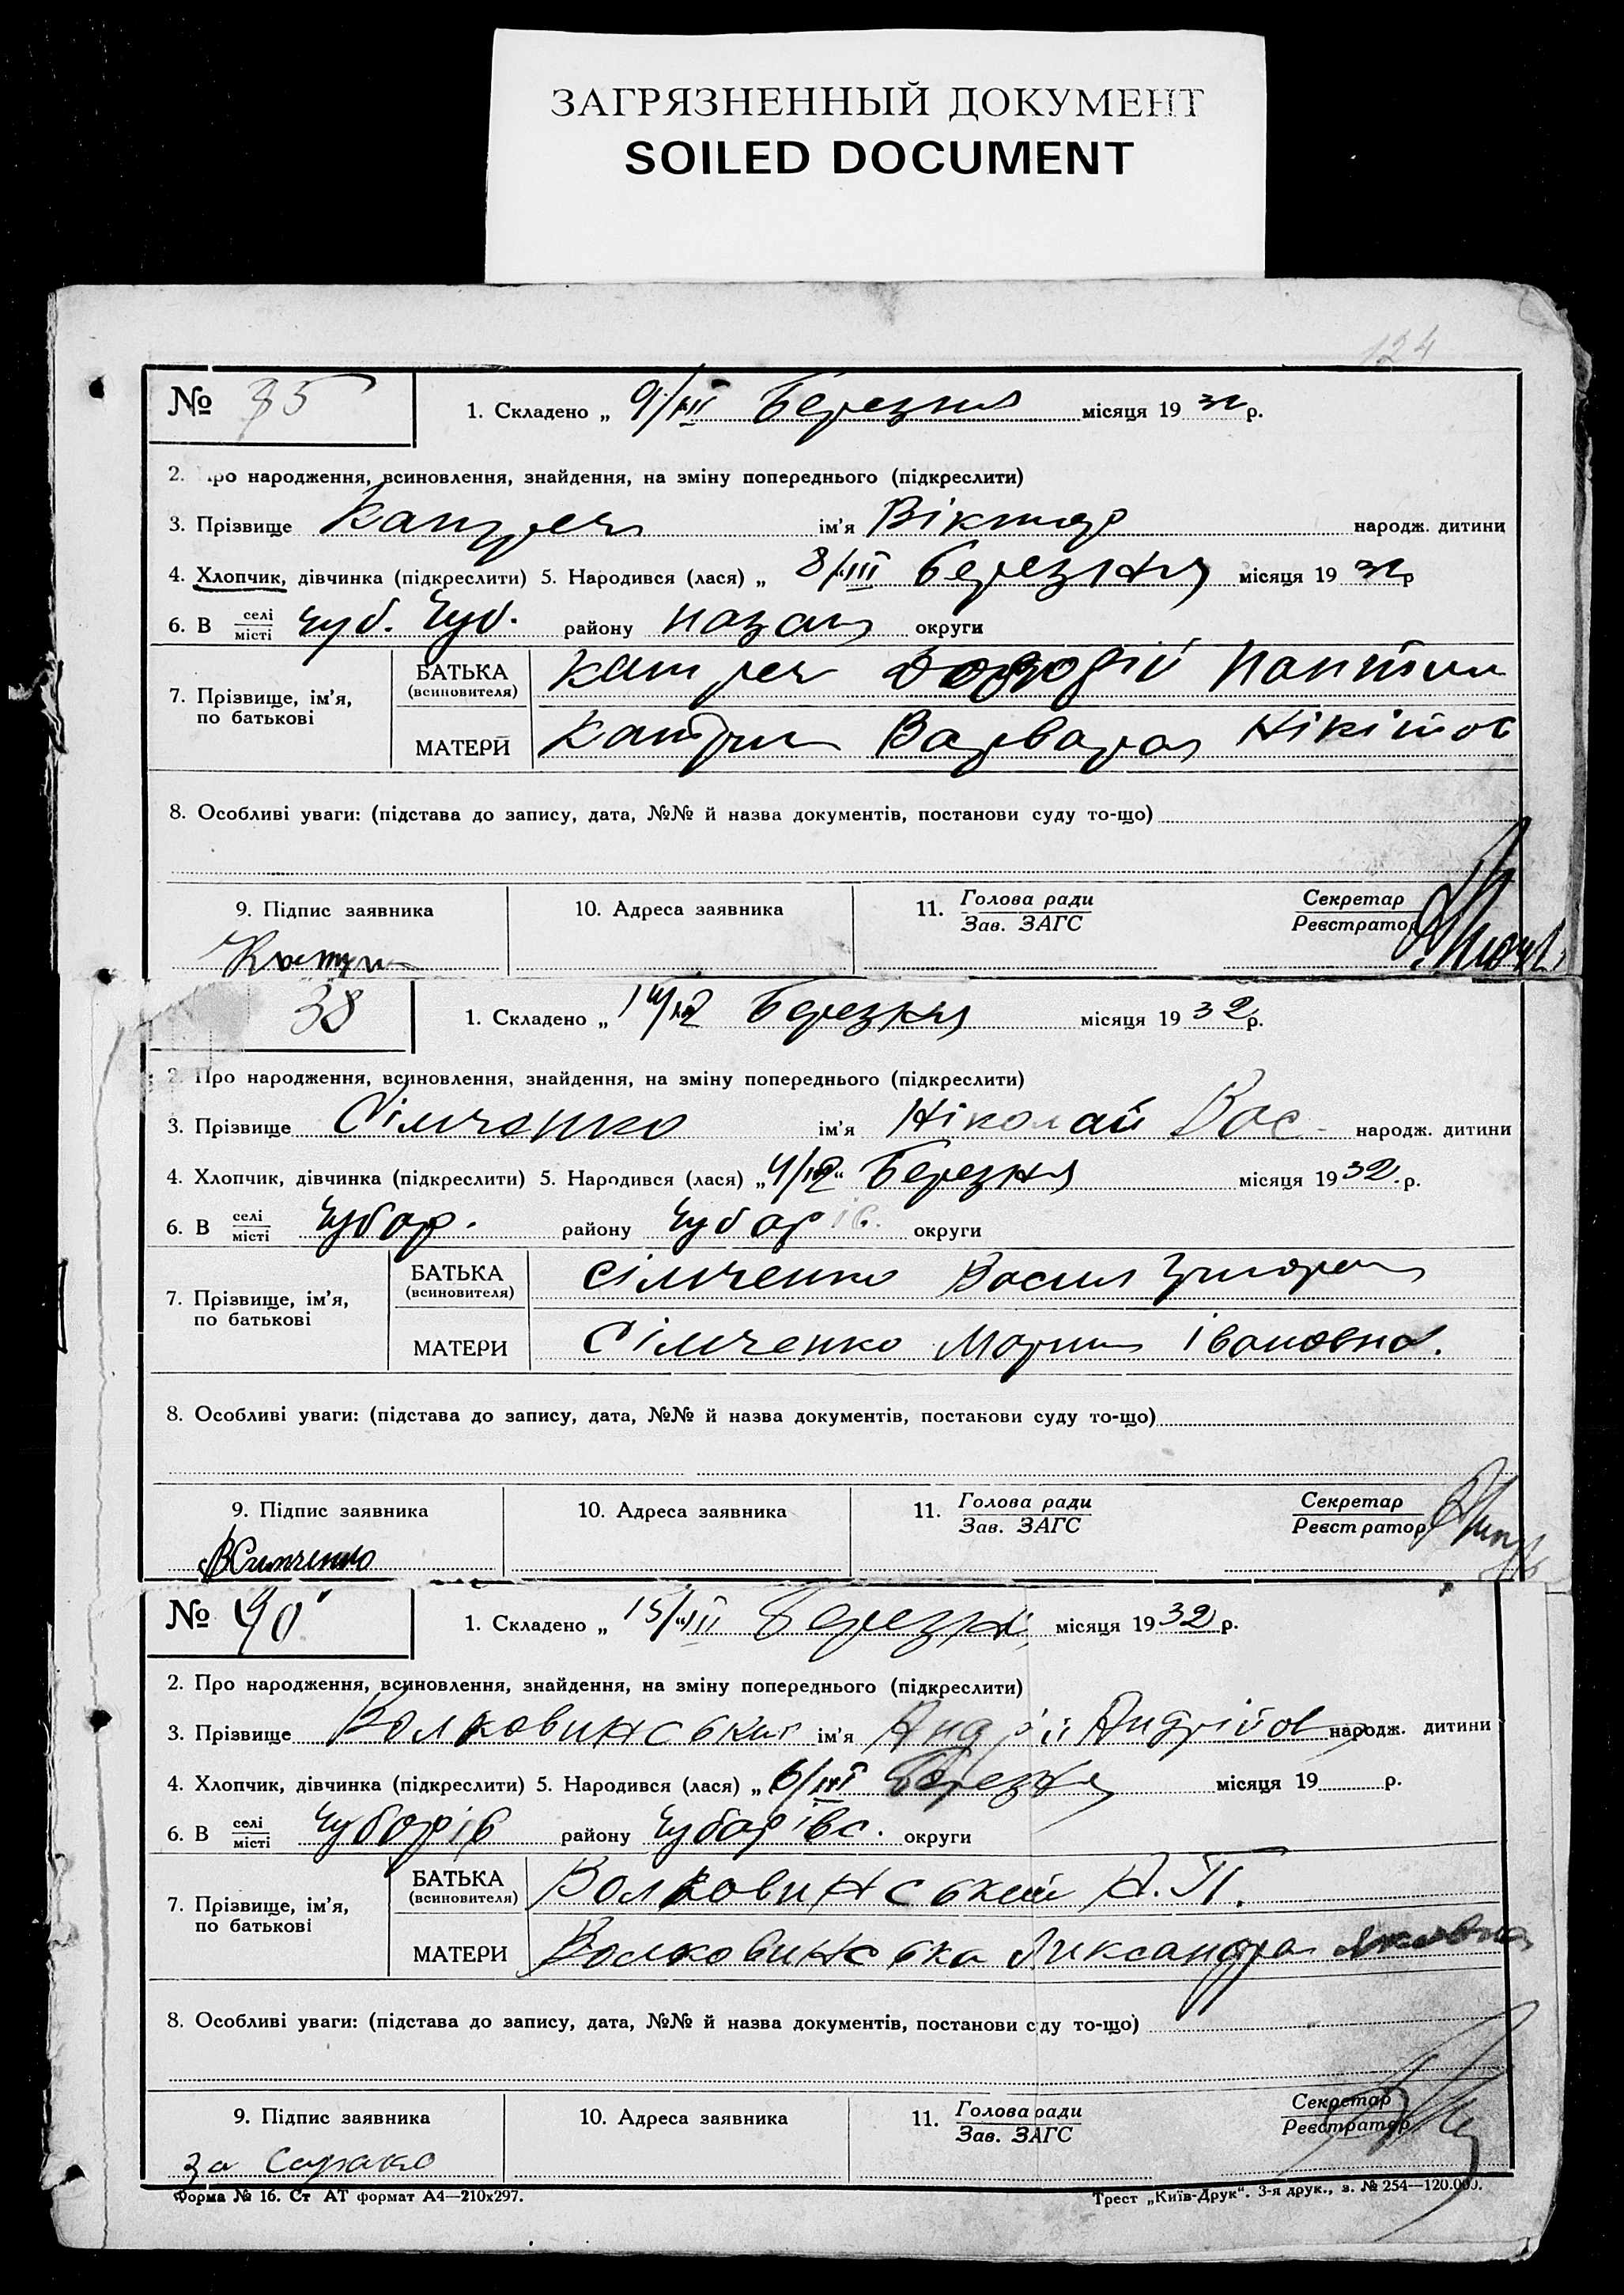 ЗАГРЯЗНЕННЫЙ ДОКУМЕНТ
SOILED DOCUMENT
124
№ 35
1. Складено „ 9/III Березня місяця 19 32 р.
2. про народження, всиновлення, знайдення, на зміну попереднього (підкреслити)
3. Прізвище ім'я Віктор народж. дитини
4. Хлопчик, дівчинка (підкреслити) 5. Народився (лася) „ 8/III березня місяця 19 32 р
6. В селі місті Чуб. Чуб. району округи
7. Прізвище, ім'я, по батькові
БАТЬКА (всиновителя)
МАТЕРИ Варвара Нікітов
8. Особливі уваги: (підстава до запису, дата, №№ й назва документів, постанови суду то-що)
9. Підпис заявника 10. Адреса заявника 11. Голова ради Зав. ЗАГС Секретар Реєстратор
38
1. Складено „ Березня місяця 19 32 р.
2. Про народження, всиновлення, знайдення, на зміну попереднього (підкреслити)
3. Прізвище Сімченко ім'я Ніколай Вас народж. дитини
4. Хлопчик, дівчинка (підкреслити) 5. Народився (лася) „ Березня місяця 19 32. р.
6. В селі місті Чубар. району Чубарів. округи
7. Прізвище, ім'я, по батькові
БАТЬКА (всиновителя) Сімченко Васил Григоров
МАТЕРИ Сімченко Мария Івановна.
8. Особливі уваги: (підстава до запису, дата, №№ й назва документів, постанови суду то-що)
9. Підпис заявника 10. Адреса заявника 11. Голова ради Зав. ЗАГС Секретар Реєстратор
ВСимченко
№ 40
1. Складено „ 15/III Березня місяця 19 32 р.
2. Про народження, всиновлення, знайдення, на зміну попереднього (підкреслити)
3. Прізвище Волковинський ім'я Андрій Андрійов народж. дитини
4. Хлопчик, дівчинка (підкреслити) 5. Народився (лася) „ 6/III Березня місяця 19 р.
6. В селі місті Чубарів району Чубарівс. округи
7. Прізвище, ім'я, по батькові
БАТЬКА (всиновителя) Волковинський А. П.
МАТЕРИ Волковинська Лиександра Яковна
8. Особливі уваги: (підстава до запису, дата, №№ й назва документів, постанови суду то-що)
9. Підпис заявника 10. Адреса заявника 11. Голова ради Зав. ЗАГС Секретар Реєстратор
за
Форма № 16. Ст АТ формат А4—210х297. Трест „Київ-Друк“. 3-я друк., з. № 254—120.000.